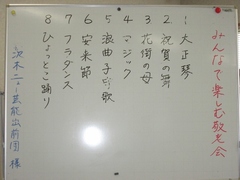 みんなで楽しむ敬老会
1 大正琴
2 祝賀の舞
3 花街の母
4 マジック
5 浪曲子守歌
6 安来節
7 フラダンス
8 ひょっとこ踊り
茨木ニュー芸能出前団 様